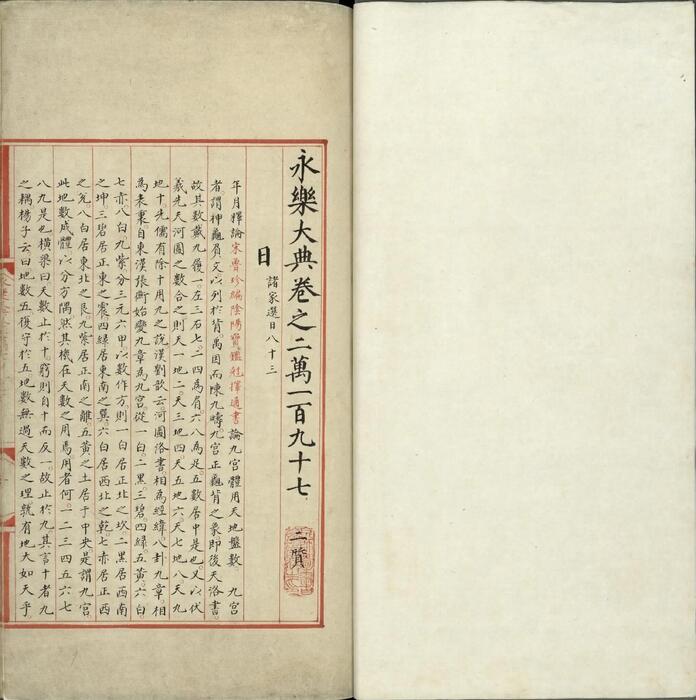 永樂大典卷之二萬一百九十七
二質
日 諸家選日八十三
年月釋論宋魯珍編陰陽寶鑑尅擇通書論九宮體用天地盤數 九宮
者謂神龜負文以列於背禹因而陳九疇九宮正龜背之象即後天洛書
故其數戴九履一左三右七二四為肩六八為足五數居中是也又以伏
羲先天河圖之數合之則天一地二天三地四天五地六天七地八天九
地十先儒有除十用九之說漢劉歆云河圖洛書相為經緯八卦九章相
為表裏自東漢張衡始變九章為九宮從一白二黑三碧四綠五黃六白
七赤八白九紫分三元六甲以數作方則一白居正北之坎二黑居西南
之坤三碧居正東之震四綠居東南之巽六白居西北之乾七赤居正西
之兌八白居東北之艮九紫居正南之離五黃之土居于中央是謂九宮
此地數成體以分方隅然其機在天數之用焉用者何一二三四五六七
八九是也橫渠曰天數止於十窮則自十而反一故止於九其言十者九
之耦楊子云曰地數五復守於五地數無過天數之理孰有地大如天乎